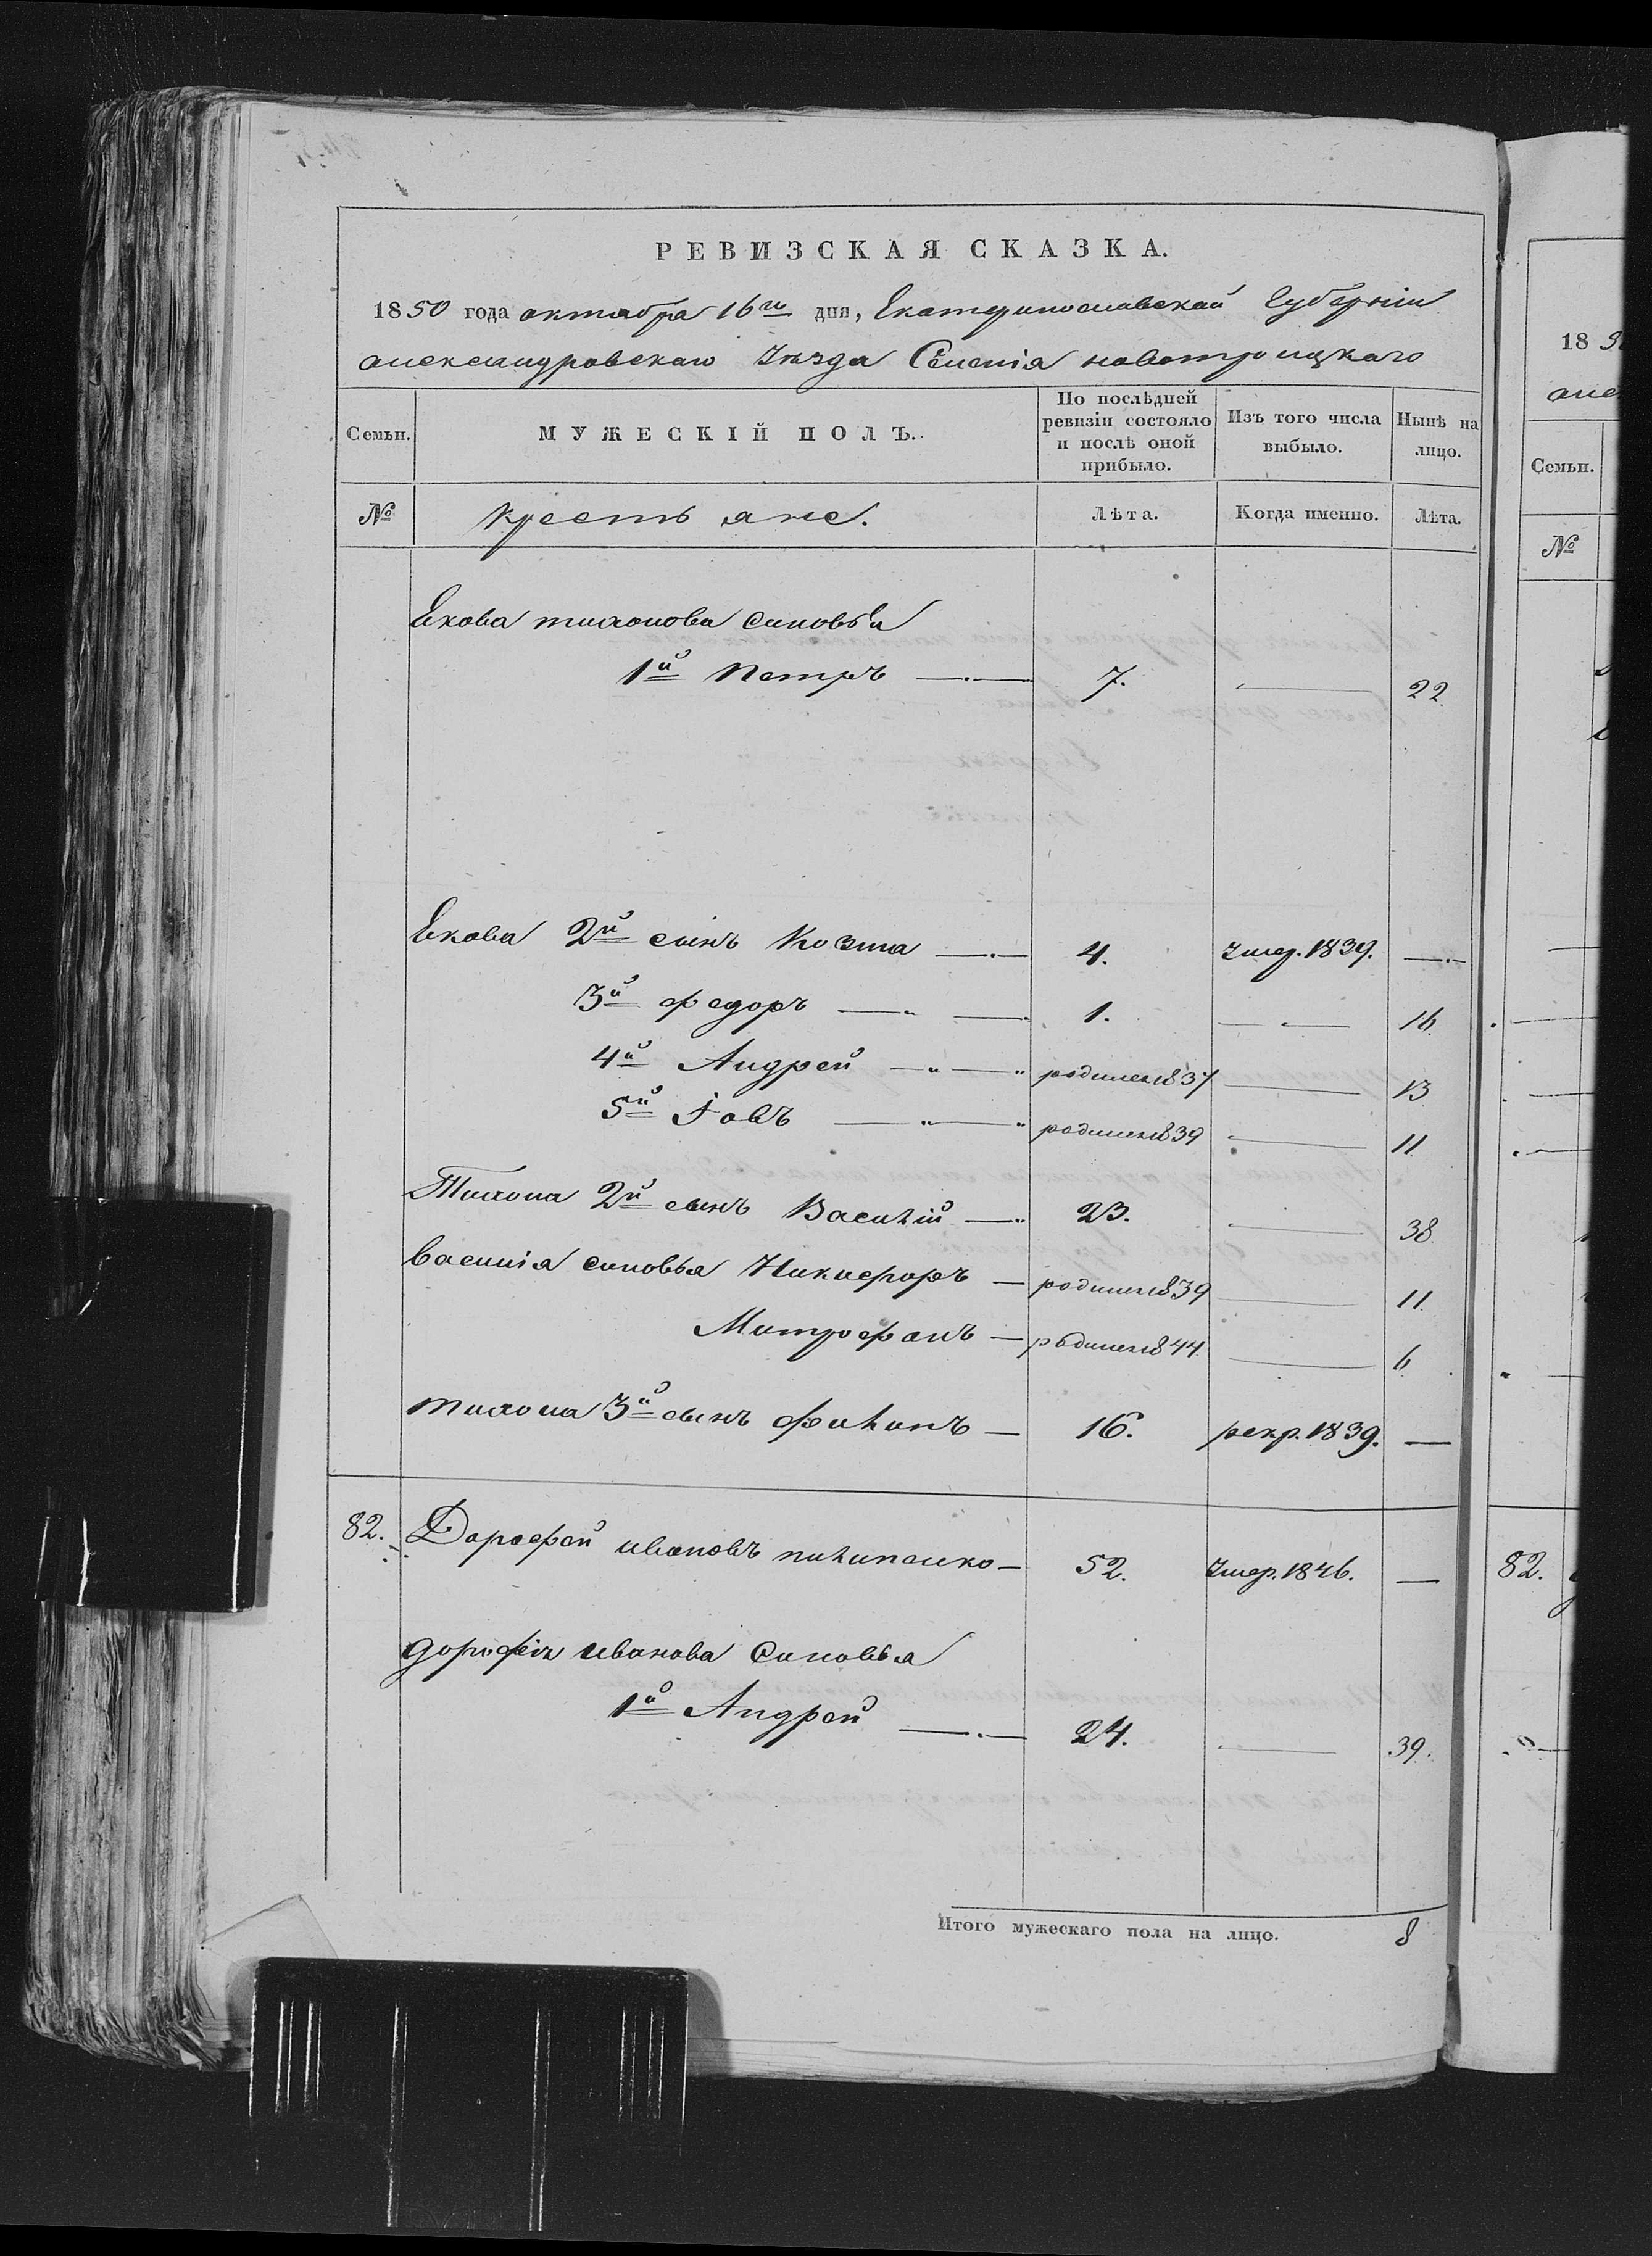 РЕВИЗСКАЯ СКАЗКА.
1850 года октября 16го дня, Екатеринославской Губерніи
александровскаго Уезда Селенія новотроицкаго
Семьи. МУЖЕСКІЙ ПОЛЪ. По послѣдней ревизіи состояло и послѣ оной прибыло. Изъ того числа выбыло. Нынѣ на лицо.
№ крестьяне. Лѣта. Когда именно. Лѣта.
Екова тихонова синовья
1й Петръ 7. 22
Екова 2й сынъ Козма 4. Умер. 1839.
3й федоръ 1. 16
4й Андрей родилси 837 13
5й Іовъ родилси 839 11
Тихона 2й сынъ Василій 23. 38
василія синовья Никифоръ родилси 839 11
Митрофанъ родилси 844 6
тихона 3й сынъ филипъ 16. рекр. 1839.
82. Дорофей ивановъ пилипенко 52. Умер. 1846.
дорофія иванова синовья
1й Андрей 24. 39.
Итого мужескаго пола на лицо. 8
18
Семьи.
№
82.